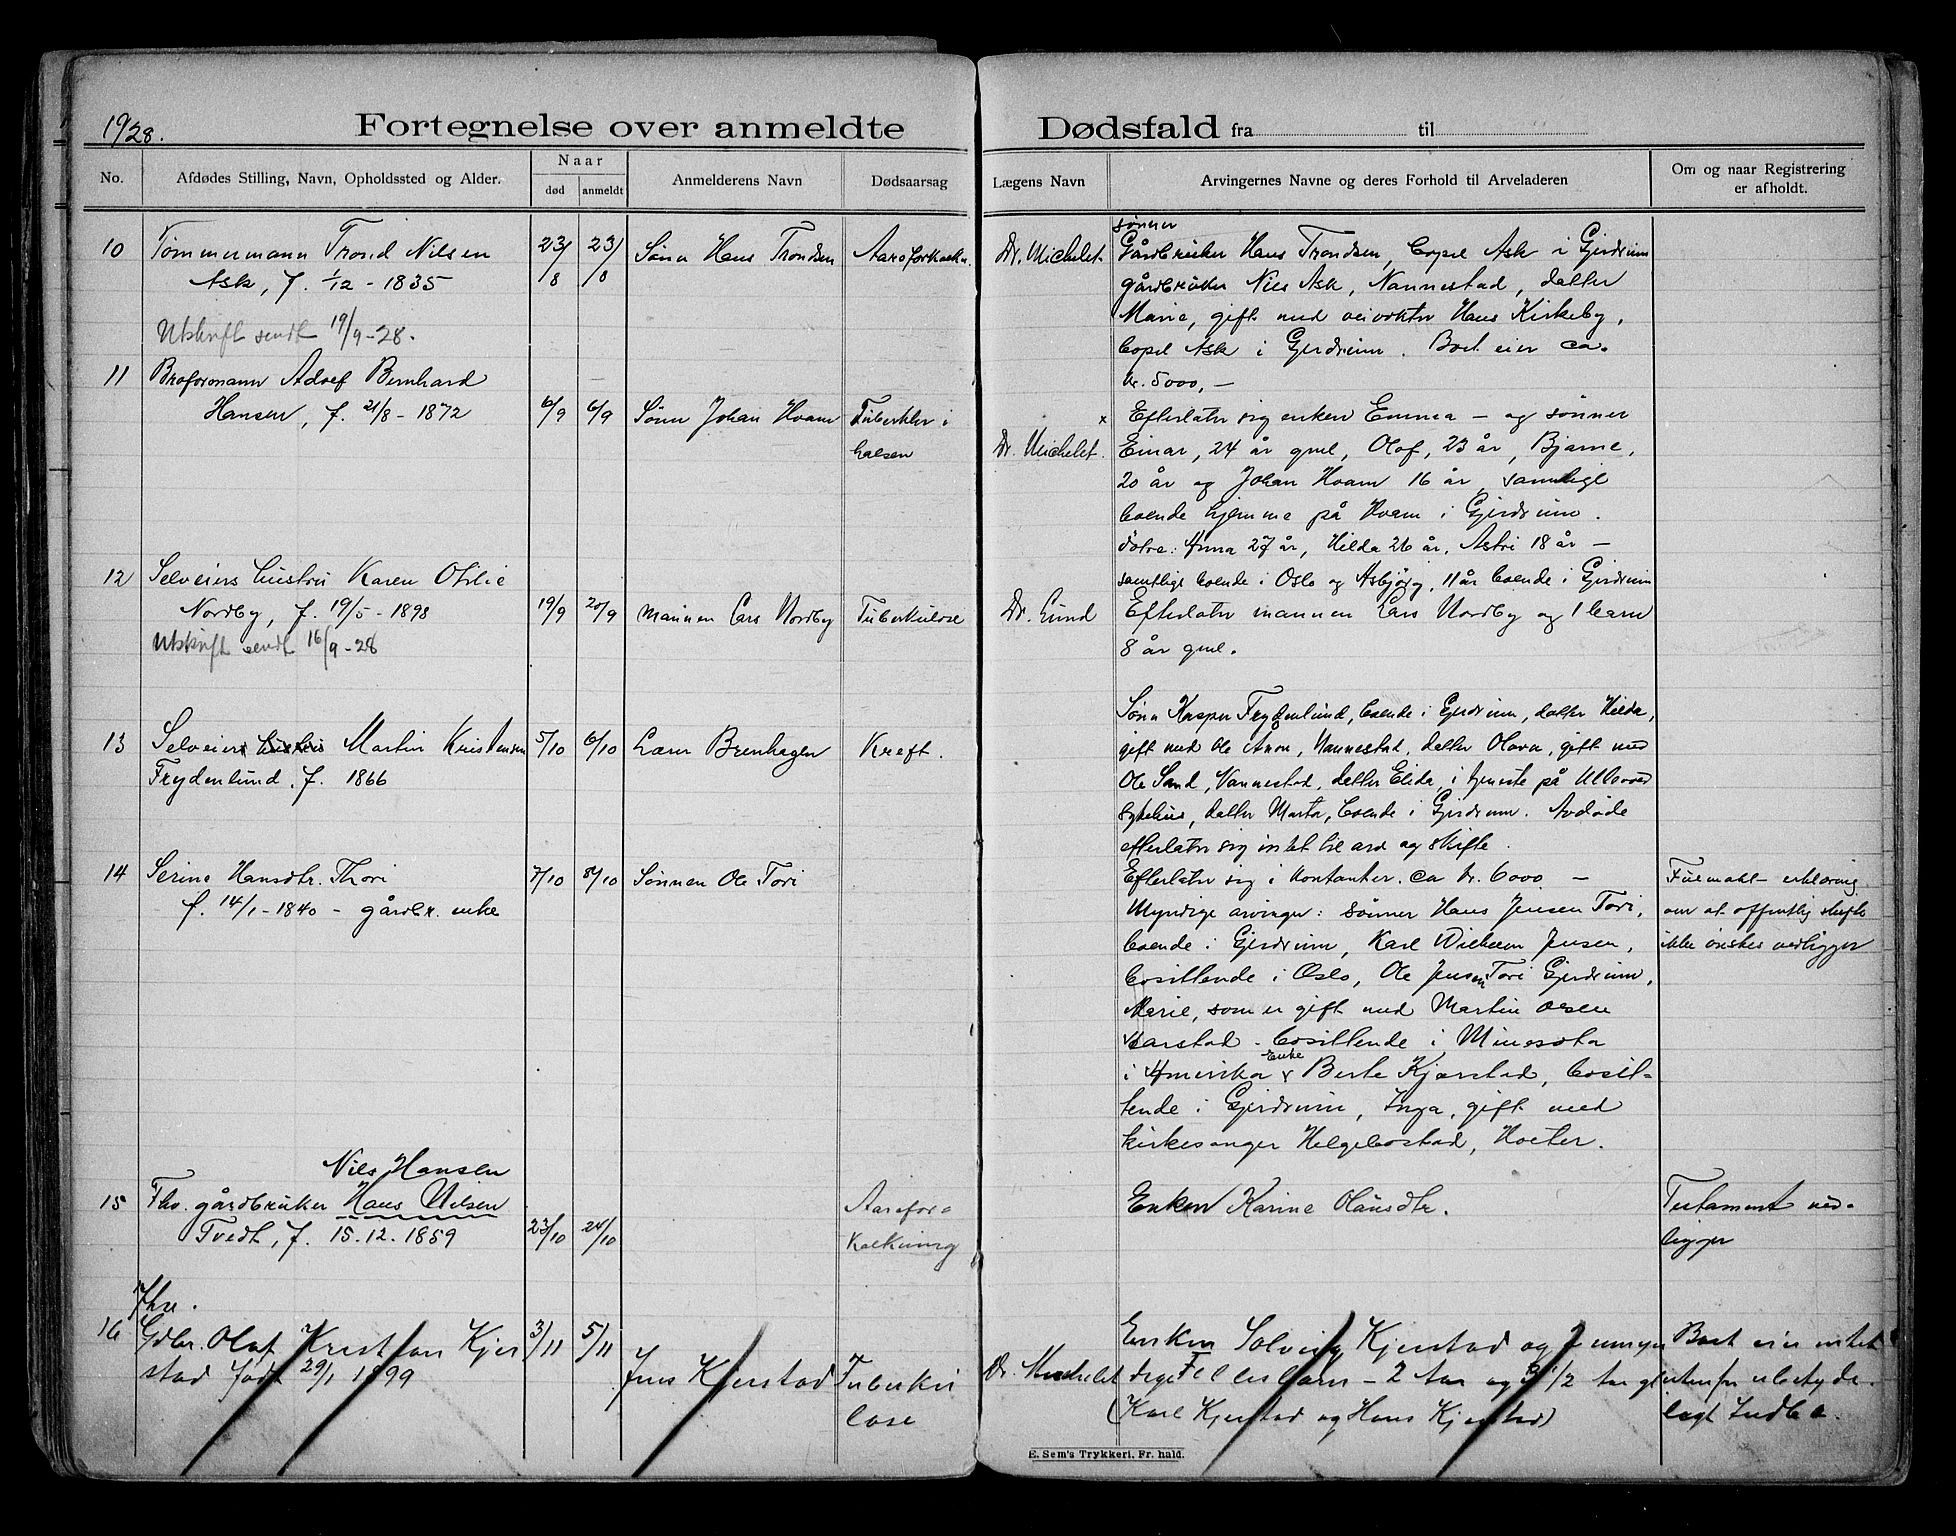 1928.
Fortegnelse over anmeldte Dødsfald fra til
No.
Afdødes Stilling, Navn, Opholdssted og Alder.
Naar
død
anmeldt
Anmelderens Navn
Dødsaarsag
Lægens Navn
Arvingernes Navne og deres Forhold til Arveladeren
Om og naar Registrering
er afholdt.
10
Tømmermann Trond Nilsen
Ask, f. 1/12 - 1835
Utskrift sendt 19/9-28.
23/8
23/8
Sønn Hans Trondsen
Aareforkalkn.
Dr. Michelet
sønner
Gårdbruker Hans Trondsen, bopel Ask i Gjerdrum
gårdbruker Nils Ask, Nannestad, datter
Marie, gift med veivokter Hans Kirkeby,
bopel Ask i Gjerdrum. Boet eier ca.
kr. 5000,-
11
Broformann Adolf Bernhard
Hansen, f. 21/8 - 1872
6/9
6/9
Sønn Johan Hvam
Tuberkler i
halsen
x
Dr. Michelet.
Efterlater sig enken Emma - og sønner
Einar, 24 år gml, Olaf, 23 år, Bjarne,
20 år og Johan Hvam 16 år, samtlige
boende hjemme på Hvam i Gjerdrum.
døtre: Anna 27 år, Hilda 26 år, Astri 18 år -
samtlige boende i Oslo og Asbjörg, 11 år boende i Gjerdrum
12
Selveiers hustru Karen Otilie
Nordby, f. 19/5 - 1898
Utskrift sendt 16/9-28
19/9
20/9
Mannen Lars Nordby
Tuberkulose
Dr. Lund
Efterlater mannen Lars Nordby og 1 barn
8 år gml.
13
Selveier hustru Martin Kristensen
Frydenlund, f. 1866
5/10
6/10
Lærer Brenhagen
Kreft.
Sønn Kasper Frydenlund, boende i Gjerdrum, datter Hilda,
gift med Ole Åmon, Nannestad, datter Olava, gift med
Ole Sand, Nannestad, datter Elida, i tjeneste på Ullevoed
sykehus, datter Marta, boende i Gjerdrum. Avdøde
efterlater sig intet til arv og skifte.
14
Serine Hansdtr. Thori
f. 14/1 - 1840 - gårdbr. enke
7/10
8/10
Sønnen Ole Tori
Efterlater sig i kontanter ca kr. 6000 -
Myndige arvinger: sønner Hans Jensen Tori,
boende i Gjerdrum, Karl Wilhelm Jensen,
bosittende i Oslo, Ole Jensen Tori Gjerdrum,
Marie, som er gift med Martin Olsen
Karstad - bosittende i Minesota
i Amerika x Enke Berte Kjærstad, bosit-
tende i Gjerdrum, Inga, gift med
kirkesanger Helgebostad, Holter.
Fuemakt - erklæring
om at offentlig skifte
ikke ønskes vedligger
15
Nils Hansen
Fhv. gårdbruker Hans Nilsen
Tvedt, f. 15.12.1859
23/10
24/10
Aarefor-
kalkning
Enken Karine Olausdtr.
Testament ved-
ligger
16
Fhv.
Gdbr. Olaf Kristian Kjer
stad født 29/1 1899
3/11
5/11
Jens Kjerstad
Tuberku
lose
Dr. Michelet
Enken Solveig Kjerstad og 2 umyn
dige Fellesbarn - 2 aar og 3 1/2 aar gl
(Karl Kjerstad og Hans Kjerstad)
Boet eier intet
utenfor ubetyde-
ligt Indbo.
E. Sem's Trykkeri, Fr. hald.